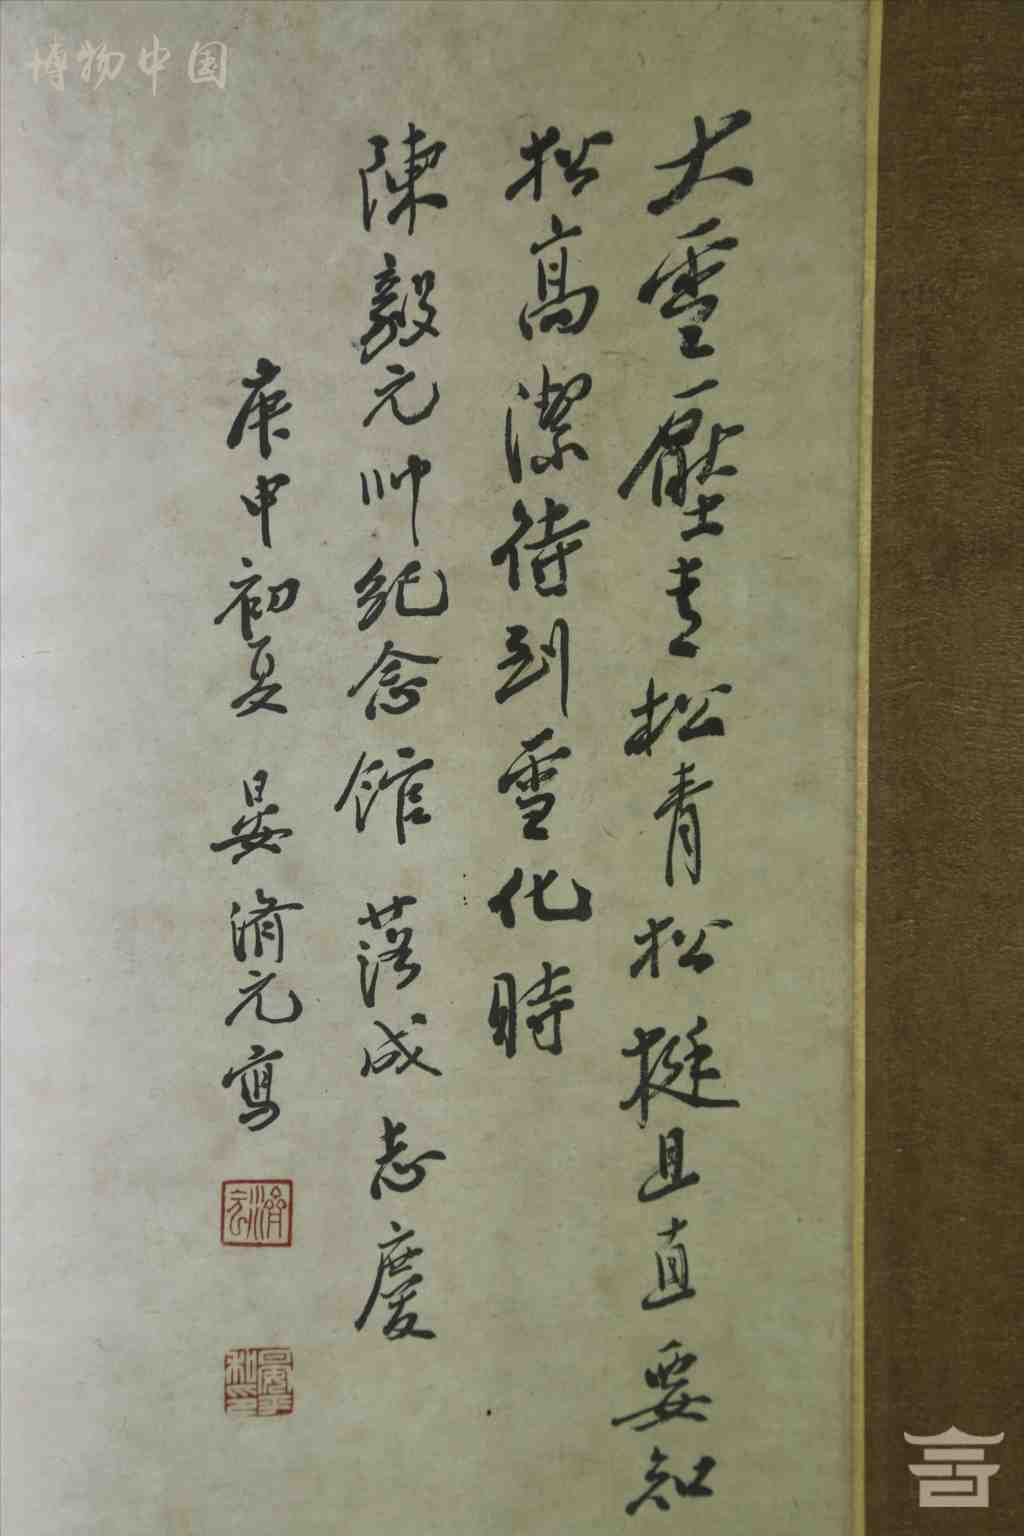 博物中国
大雪壓青松青松挺且直要知
松高潔待到雪化時
陳毅元帅纪念馆落成志慶
庚申初夏 晏濟元寫